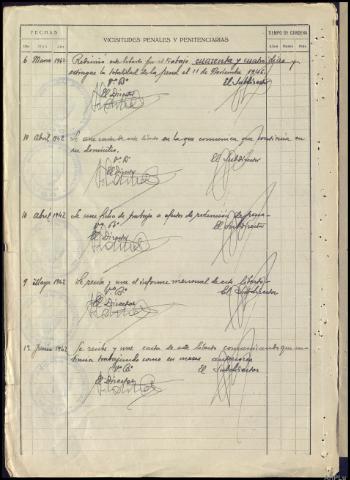 FECHAS
VICISITUDES PENALES Y PENITENCIARIAS
TIEMPO DE CONDENA
Día Mes Año
Años Meses Días
6 Marzo 1942 Redimido este liberto por el trabajo cuarenta y cuatro días y
extingue la totalidad de la pena el 11 de Noviembre 1946.
Vº Bº
El Director
El Subdirector
10 Abril 1942 Se une carta de este liberto en la que comunica que continúa en
su domicilio.
Vº Bº
El Director
El Subdirector
16 Abril 1942 Se une ficha de trabajo a efectos de redención de pena
Vº Bº
El Director
El Subdirector
9 Mayo 1942 Se recibe y une el informe mensual de este liberto
Vº Bº
El Director
El Subdirector
12 Junio 1942 Se recibe y une carta de este liberto comunicando que
trabajando como en meses anteriores
Vº Bº
El Director
El Subdirector